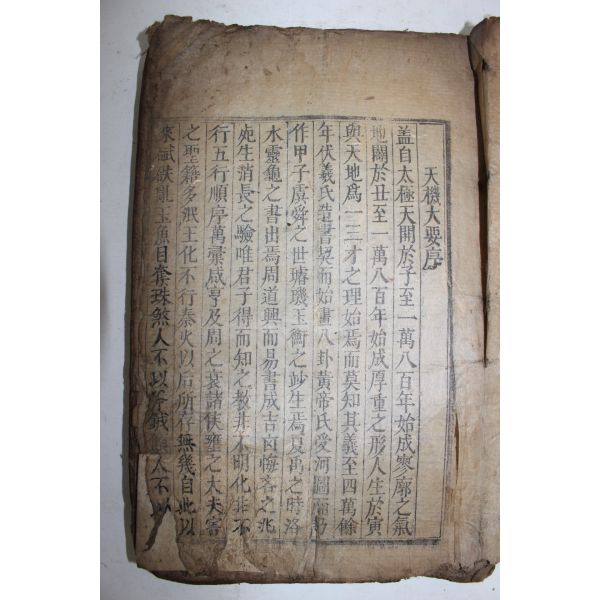 天機大要序
盖自太極天開於子至一萬八百年始成寥廓之氣
地闢於丑至一萬八百年始成厚重之形人生於寅
與天地爲一三才之理始焉而莫知其義至四萬餘
年伏羲氏造書契而始畫八卦黃帝氏受河圖而
作甲子虞舜之世璿璣玉衡之妙生焉夏禹之時洛
水靈龜之書出焉周道興而易書成吉凶悔吝之兆
宛生消長之驗唯君子得而知之教非不明化非不
行五行順序萬彙咸亨及周之衰諸侯壅之大夫害
之聖雖多泯王化不行秦火以后所存無幾自此以
來碔砆亂玉魚目奪珠煞人不以 太不以